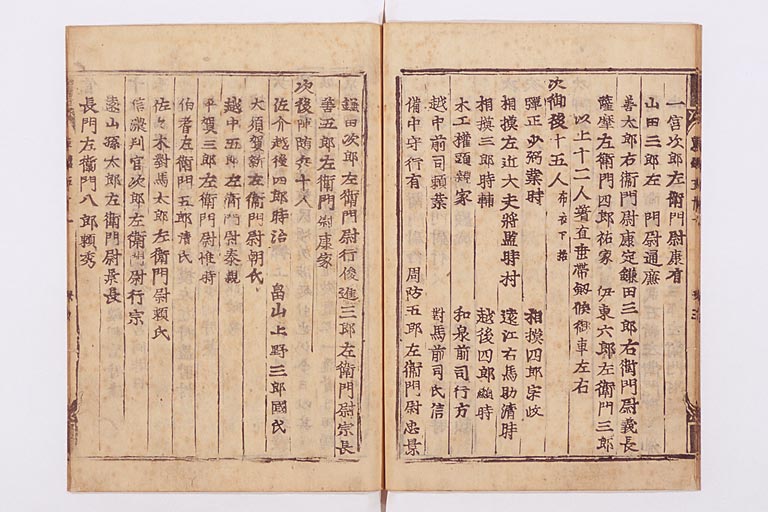 一宮次郎左衛門尉康有
山田三郎左衛門尉通廉
善太郎右衛門尉康定鎌田三郎右衛門尉義長
薩摩左衛門四郎祐家 伊東六郎左衛門三郎
以上十二人著直垂帯劔候御車左右
次御後十五人 布衣下括
彈正少弼業時 相摸四郎宗政
相摸左近大夫將監時村 遠江右馬助清時
相摸三郎時輔 越後四郎顕時
木工權頭親家 和泉前司行方
越中前司頼業 對馬前司氏信
備中守行有 周防五郎左衛門尉忠景
鎌田次郎左衛門尉行俊進三郎左衛門尉宗長
善五郎左衛門尉康家
次後陣随兵十人
佐介越後四郎時治 畠山上野三郎國氏
大須賀新左衛門尉朝氏
越中五郎左衛門尉泰親
平賀三郎左衛門尉惟時
伯耆左衛門五郎清氏
佐々木對馬太郎左衛門尉頼氏
信濃判官次郎左衛門尉行宗
遠山孫太郎左衛門尉景長
長門左衛門八郎頼秀